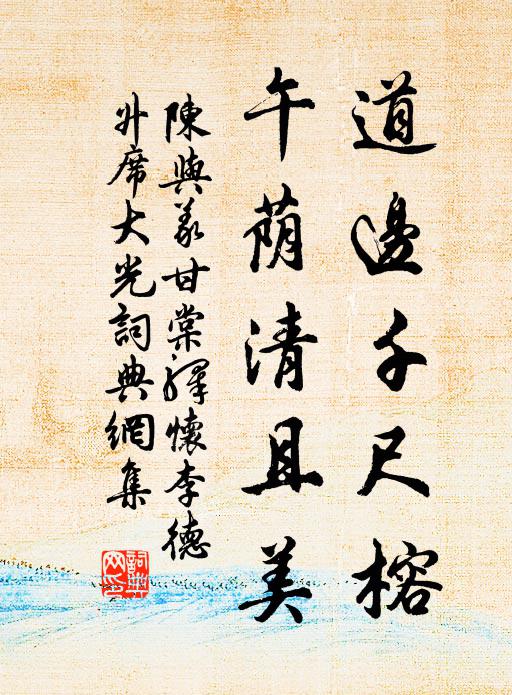 道邊千尺榕
午荫清且美
陳與義甘棠驛懷李德
升席大光詞典網集
詞典